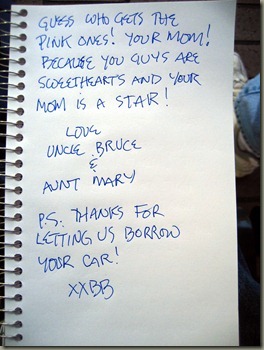 GUESS WHO GETS THE
PINK ONES! YOUR MOM!
BECAUSE YOU GUYS ARE
SWEETHEARTS AND YOUR
MOM IS A STAR!
LOVE
UNCLE BRUCE
&
AUNT MARY
P.S. THANKS FOR
LETTING US BORROW
YOUR CAR!
XXBB